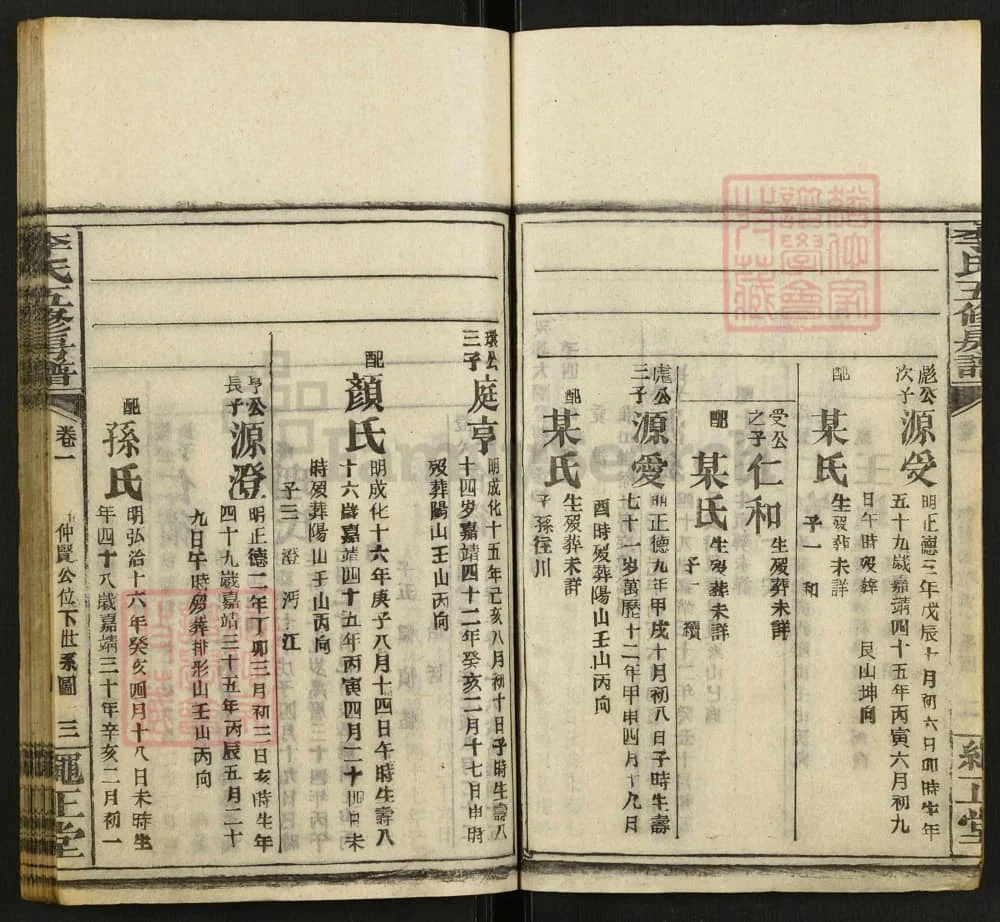 彪公
次子
源受
明正德三年戊辰十月初六日卯時生年
五十九歲嘉靖四十五年丙寅六月初九
日午時歿葬　艮山坤向
配
某氏
生歿葬未詳
子一　和
受公
之子
仁和
生歿葬未詳
配
某氏
生歿葬未詳
子一　續
彪公
三子
源愛
明正德九年甲戌十月初八日子時生壽
七十一岁萬歷十二年甲申四月十九月
酉時歿葬陽山壬山丙向
配
某氏
生歿葬未詳
子孫徃川
環公
三子
庭亨
明成化十五年己亥八月初十日子時生壽八
十四岁嘉靖四十二年癸亥二月十七日申時
歿葬陽山壬山丙向
配
顏氏
明成化十六年庚子八月十四日午時生壽八
十六歲嘉靖四十五年丙寅四月二十四日未
時歿葬陽山壬山丙向
子三　澄　沔　江
亨公
長子
源澄
明正德二年丁卯三月初二日亥時生年
四十九歲嘉靖三十五年丙辰五月二十
九日午時歿葬排形山壬山丙向
配
孫氏
明弘治十六年癸亥四月十八日未時生
年四十八歲嘉靖三十年辛亥二月初一
李氏五修房譜
卷一
仲賢公位下世系圖
三
繩正堂